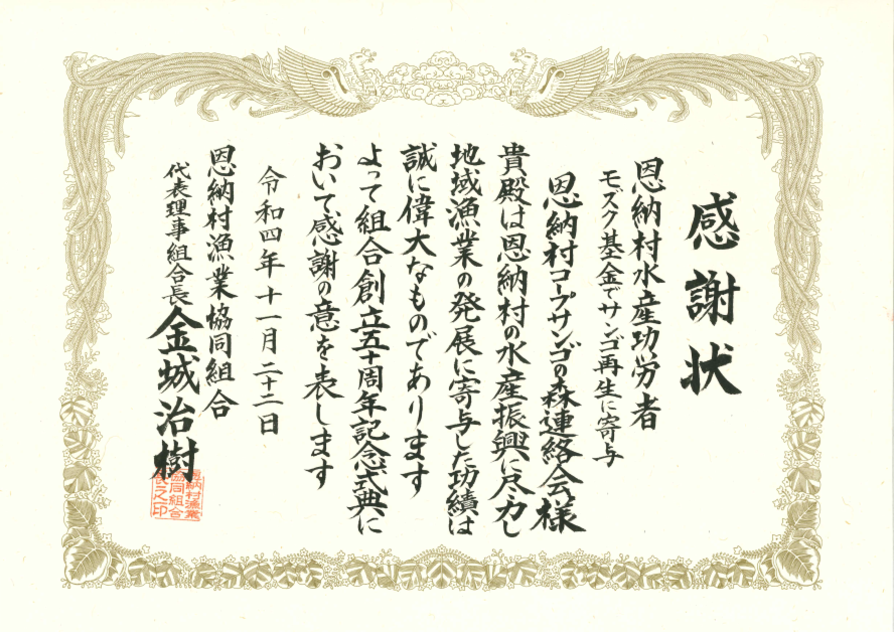 感謝状
恩納村水産功労者
モズク基金でサンゴ再生に寄与
恩納村コープサンゴの森連絡会様
貴殿は恩納村の水産振興に尽力し
地域漁業の発展に寄与した功績は
誠に偉大なものであります
よって組合創立五十周年記念式典に
おいて感謝の意を表します
令和四年十一月二十二日
恩納村漁業協同組合
代表理事組合長 金城治樹
恩納村漁業
協同組合
長之印